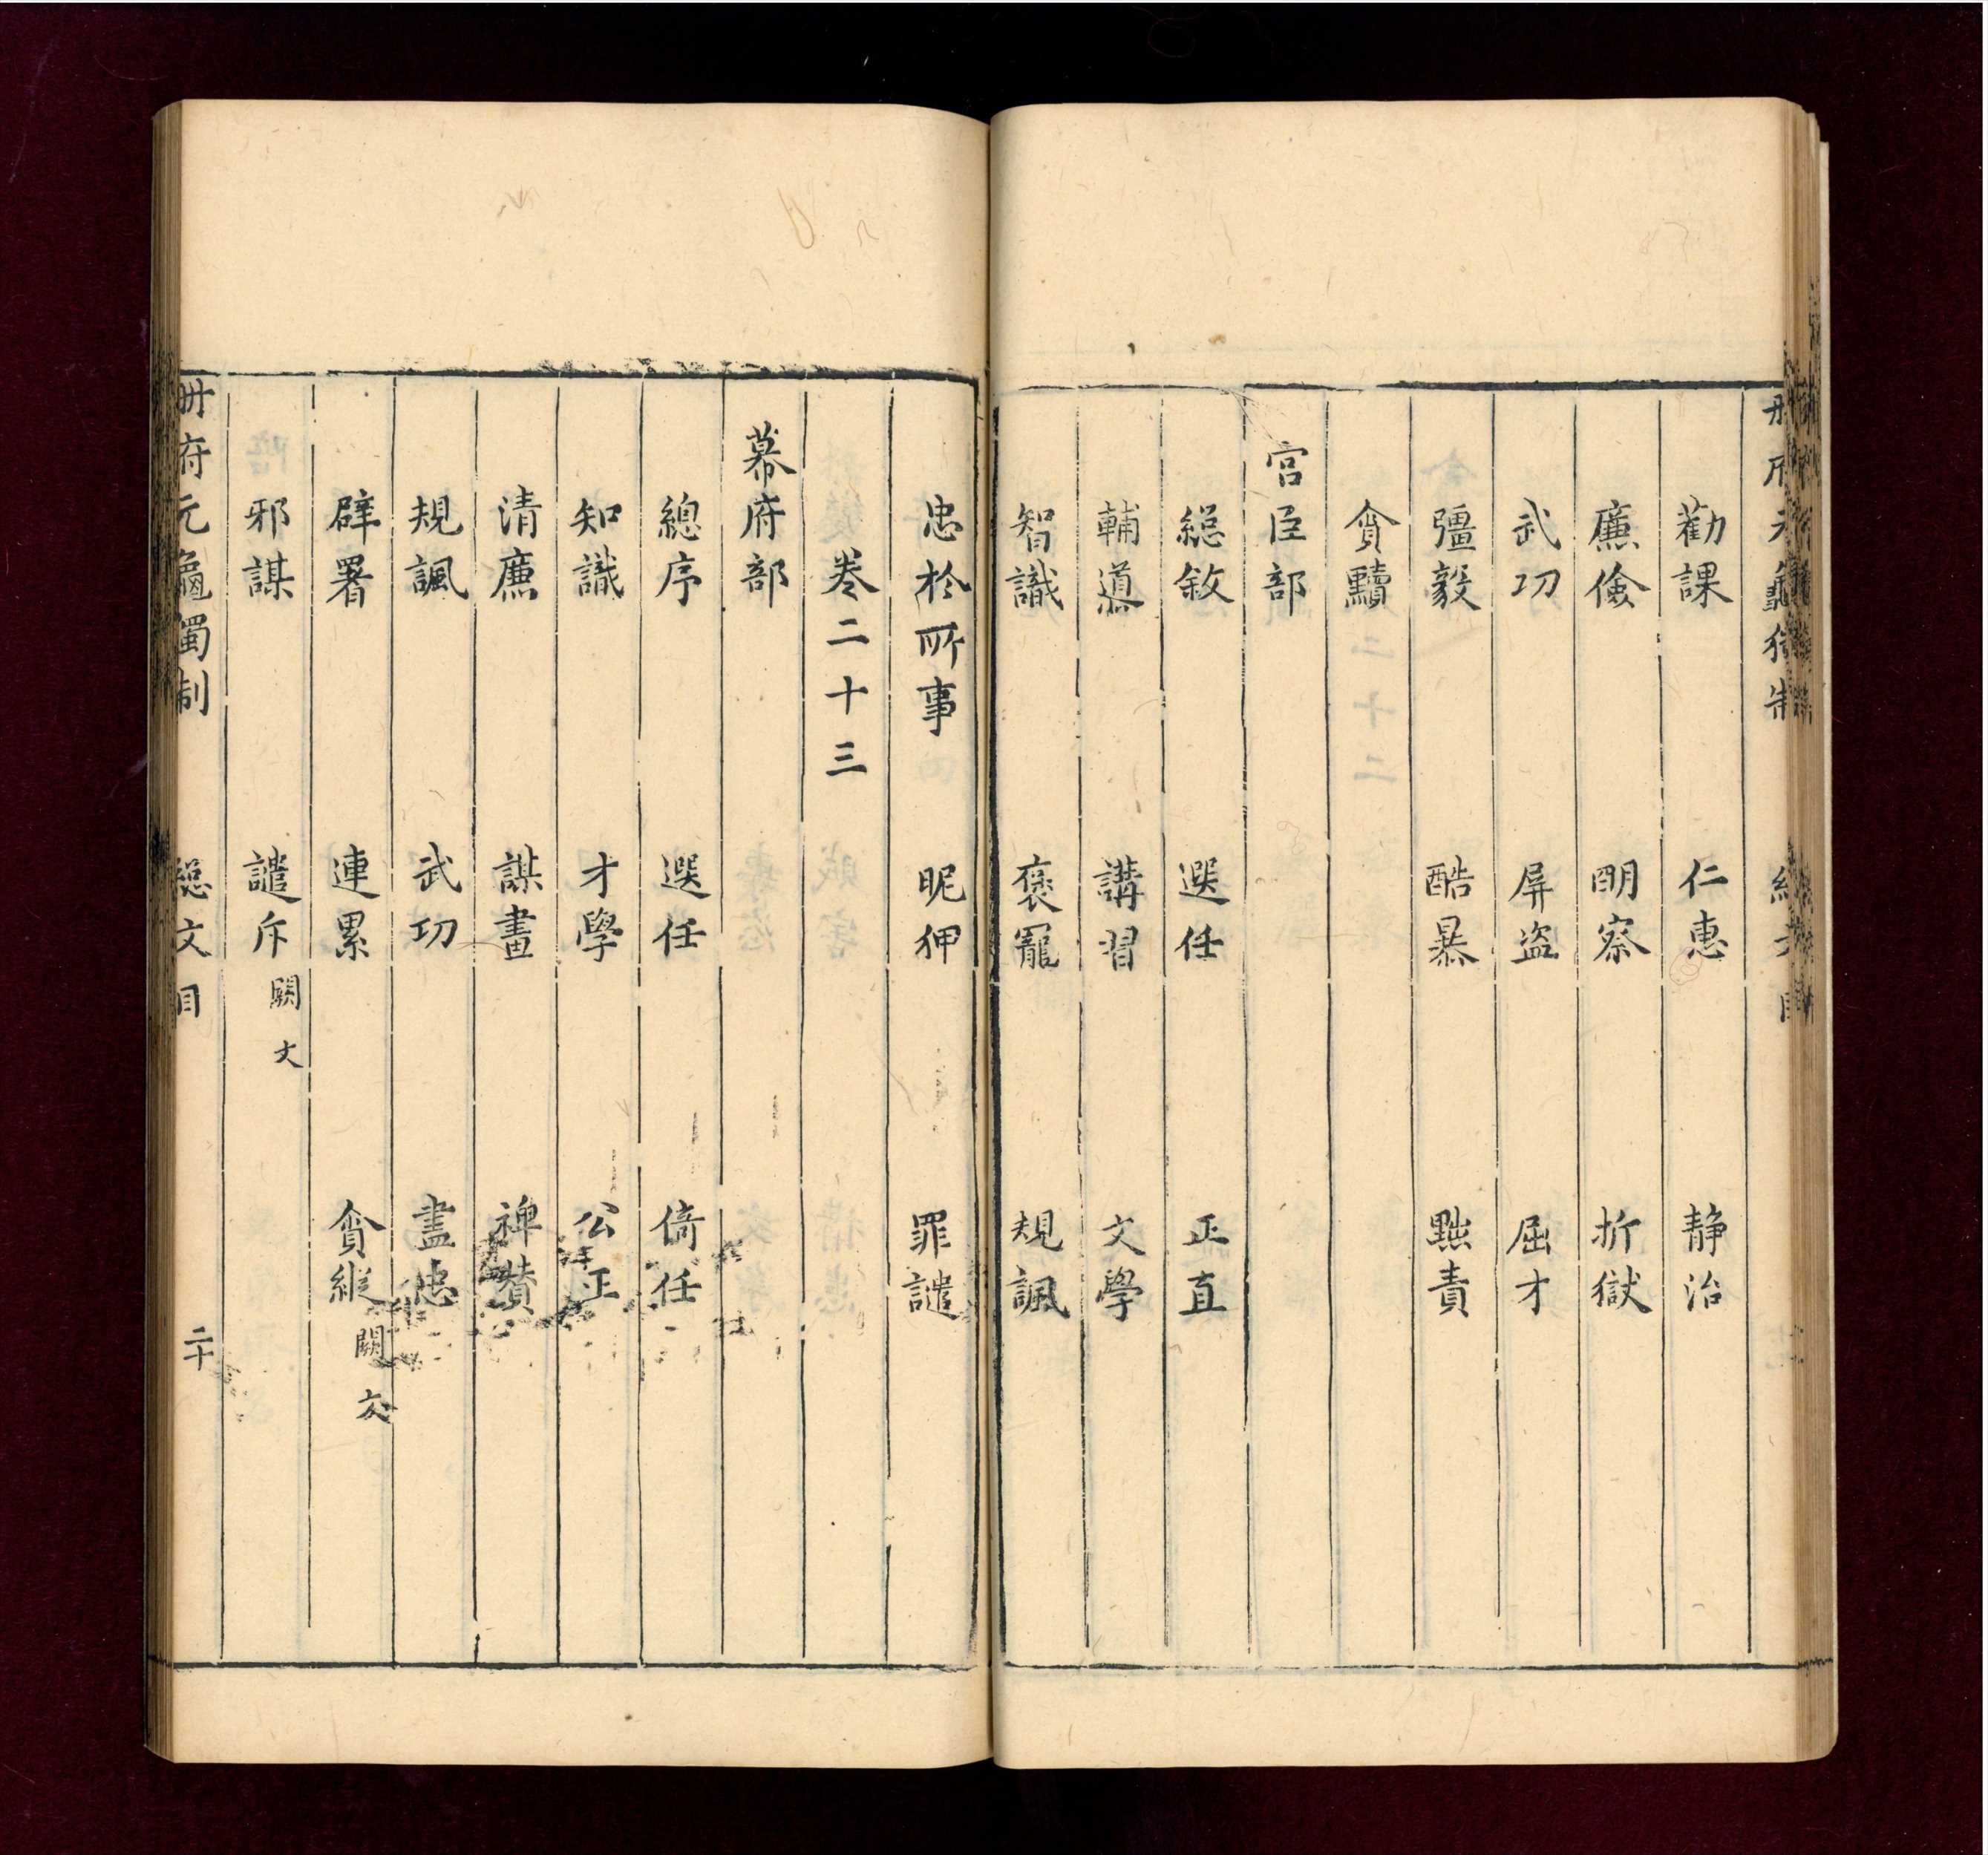 勸課 仁惠 靜治
廉儉 明察 折獄
武功 屏盜 屈才
彊毅 酷暴 黜責
貪黷
宮臣部
緫敘 選任 正直
輔導 講習 文學
智識 褒寵 規諷
忠於所事 昵狎 罪譴
卷二十三
幕府部
總序 選任 倚任
知識 才學 公正
清廉 謀畫 裨贊
規諷 武功 盡忠
辟署 連累 貪縱 闕文
邪謀 譴斥 闕文
冊府元龜獨制 緫文目 二十